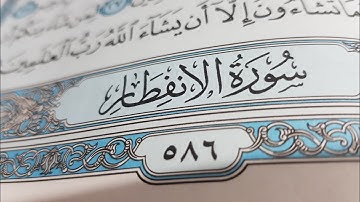 مَا تَشَآءُونَ إِلَّآ أَن يَشَآءَ ٱللَّهُ رَبُّ ٱلْعَٰلَمِينَ
سُورَةُ الانفِطَارِ
٥٨٦